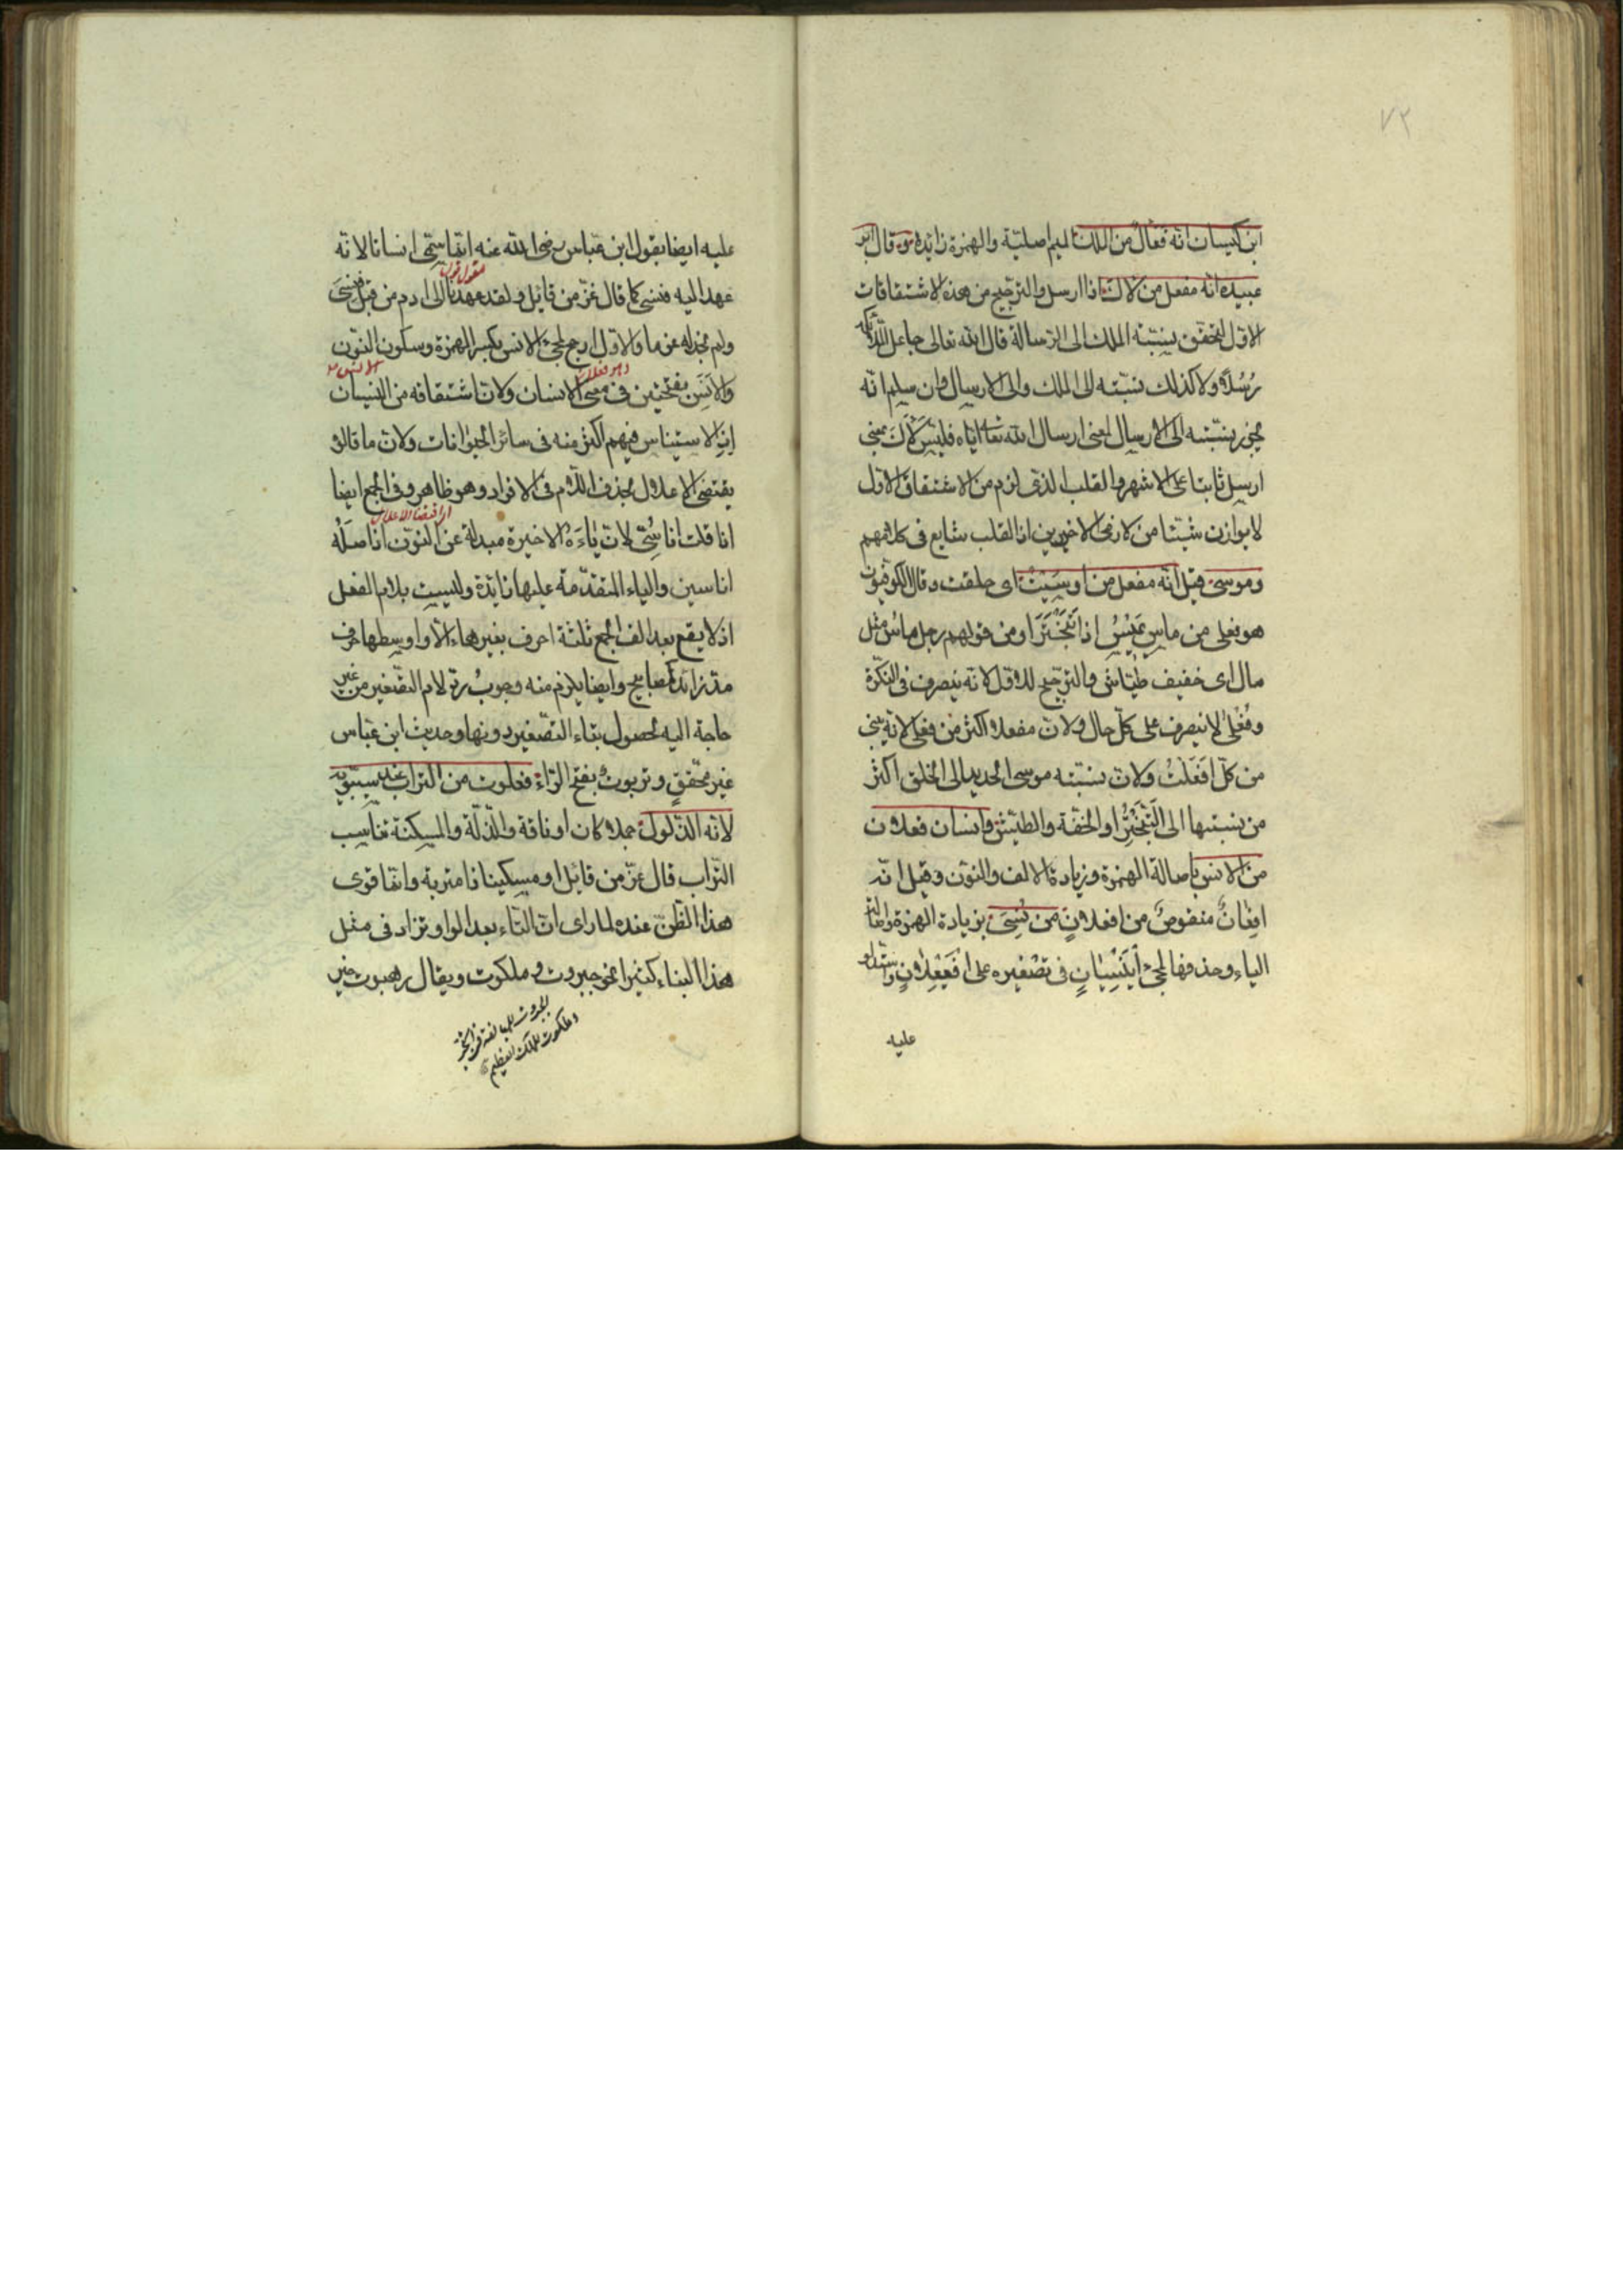 ٧٢
ابن كيسان انه فعأل من الملك الميم اصلية والهمزة زايدة وقال ابو
عبيدة انه مفعل من لأك اذا ارسل والترجيح من هذه الاشتقاقات
الاول لتحقق نسبته الملك الى الرسالة قال الله تعالى جاعل الملائكة
رُسُلًا ولا كذلك نسبته الى الملك والى الارسال وان سلم انه
يجوز نسبته الى الارسال لمعنى ارسال الله تعالى اياه فليس لأك بمعنى
ارسل ثابتا على الاشهر والقلب الذى لزم من الاشتقاق الاول
لا يوازن شيئا من لازمى الاخيرين اذ القلب شايع فى كلامهم
وموسى قيل انه مفعل من اوسيت اى حلقت وقال الكوفيون
هو فعلى من ماس يميس اذا تبختر او من قولهم رجل ماس مثل
مال اى خفيف طيّاش والترجيح للاول لانه ينصرف فى النكرة
وفُعلى لا ينصرف على كلّ حال ولانّ مفعلا اكثر من فعلى لانه يبنى
من كلّ افعلت ولانّ نسبته موسى الحديد الى الحلق اكثر
من نسبتها الى التبختر او الخفّة والطيش وانسان فعلان
من الانس باصالة الهمزة وزيادة الالف والنون وقيل انه
افعان منقوص من افعلان من نسى بزيادة الهمزة واصالة
الياء وحذفها لمجئ أُنَيْسِيَان فى تصغيره على افيعلان واستدلو
عليه
عليه ايضا بقول ابن عباس رضى الله عنه انما سمّى انسانا لانه
عهد اليه فنسى كما قال عزّ من قايل ولقد عهدنا الى ادم من قبل فنسى
ولم نجد له عزما والاول ارجح لمجئ الانس بكسر الهمزة وسكون النون
والأنَس بفتحتين فى معنى الانسان ولانّ اشتقاقه من النسيان
اذ الاستيناس فيهم اكثر منه فى سائر الحيوانات ولان ما قالو
يقتضى الاعلال بحذف اللام فى الافراد وهو ظاهر وفى الجمع ايضا
اذا قلت اناسىّ لان ياءَه الاخيرة مبدلة عن النون اذ اصله
اناسين والياء المتقدّمة عليها زايدة وليست بلام الفعل
اذ لا يقع بعد الف الجمع ثلثة احرف بغير هاء الّا واوسطها حرف
مدّ زائد كمصابيح وايضا يلزم منه وجوب ردّ لام التصغير من غير
حاجة اليه لحصول بناء التصغير دونها وحديث ابن عباس
غير محقق وتربوت بفتح الراء فعلوت من التراب عند سيبويه
لانه الذلول جملا كان او ناقة والذلّة والمسكنة تناسب
التراب قال عزّ من قائل او مسكينا ذا متربة وانما قوى
هذا الظنّ عنده لما راى انّ التاء بعد الواو تزاد فى مثل
هذا البناء كثيرا نحو جبروت وملكوت ويقال رهبوت خير